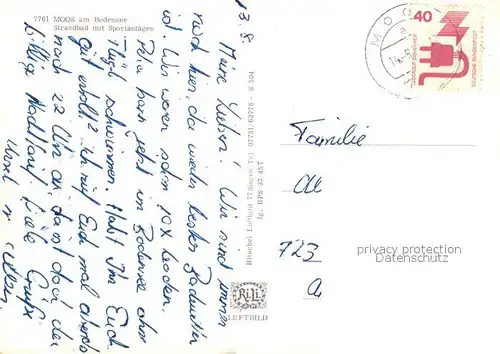 7761 MOOS am Bodensee
Strandbad mit Sportanlagen
13.8
Meine Lieben! Wir sind immer
noch hier, da wieder bestes Badewetter
ist. Wir waren schon 10x baden.
Pia kann jetzt im Bodensee ohne
Flügel schwimmen. Habt Ihr Euch
gut erholt? ruft Euch mal abends
nach 22 Uhr an, da ist doch der
billige Nachttarif. Liebe Grüße
Ursel
Hitschel Luftbild 77 Singen Tel. 07731/62778 - S 504
lg. RPS 37 457
RiLi
LUFTBILD
MOOS
40
DEUTSCHE BUNDESPOST
Familie
723
privates Ansichtskartenarchiv
oldthing.de